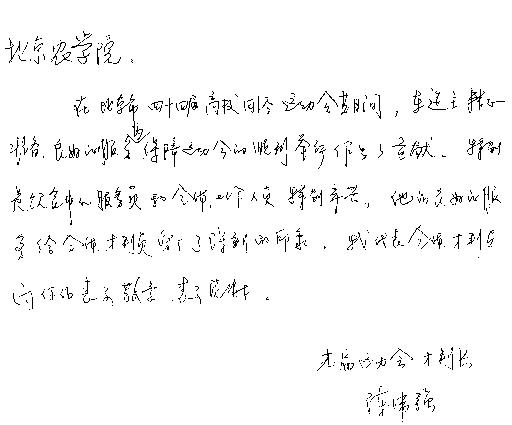 北京农学院:
在北京市四十四届高校田径运动会期间,东道主精心
准备、良好的服务为保障运动会的顺利举行作出了贡献。特别
是饮食中心服务员和全体工作人员特别辛苦,他们良好的服
务给全体裁判员留下了深刻的印象。我代表全体裁判员
向你们表示敬意,表示感谢。
本届运动会裁判长